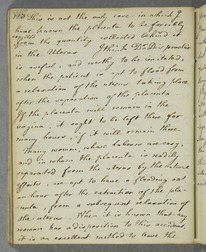 This is not the only case in which I
have known the placenta to be forcibly
expelled
from the quantity collected behind it
in the Uterus. I think Dr D's practice
is useful, and worthy to be imitated,
when the patient is apt to flood from
a relaxation of the uterus taking place
after the separation of the placenta
If the placenta will remain in the
vagina, it ought to be left there for
many hours, if it will remain there.
Many women, whose labours are easy,
and in whom the placenta is readily
separated from the uterus by the natural
efforts, are apt to have a flooding
an hour after the extraction of the pla-
centa, from a subsequent relaxation of
the uterus. When it is known that any
woman has a disposition to this accident,
it is an excellent method to leave the